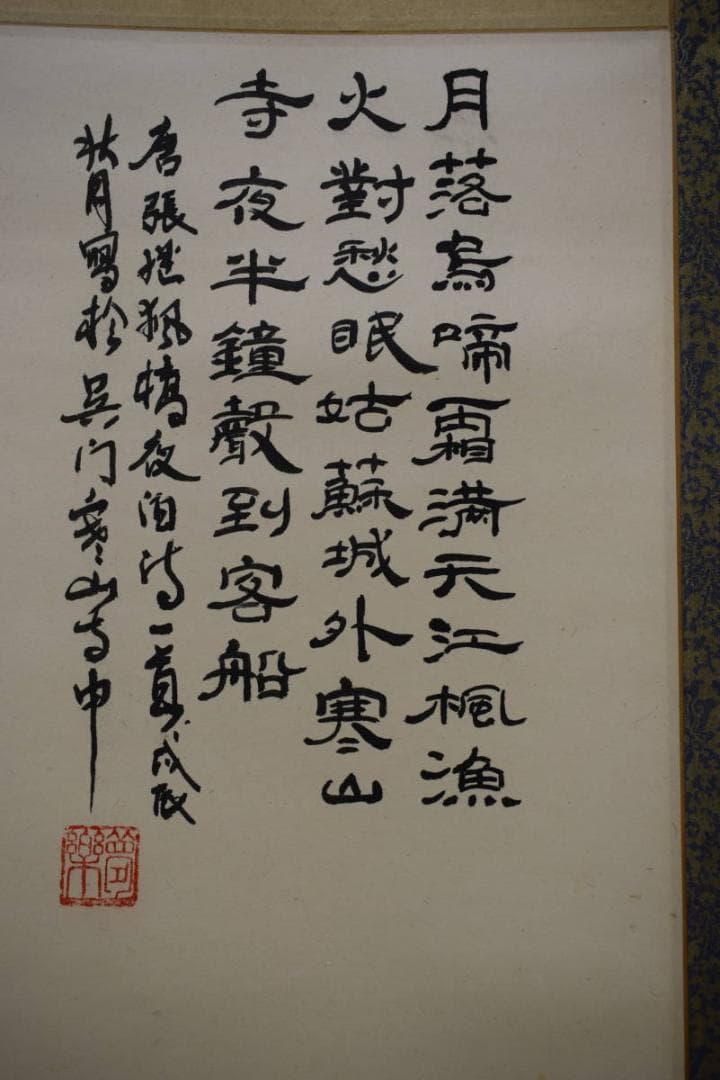 月落烏啼霜满天江楓漁
火對愁眠姑蘇城外寒山
寺夜半鐘聲到客船
唐張继楓橋夜泊诗一首戊辰
秋月寫於吳门寒山寺中